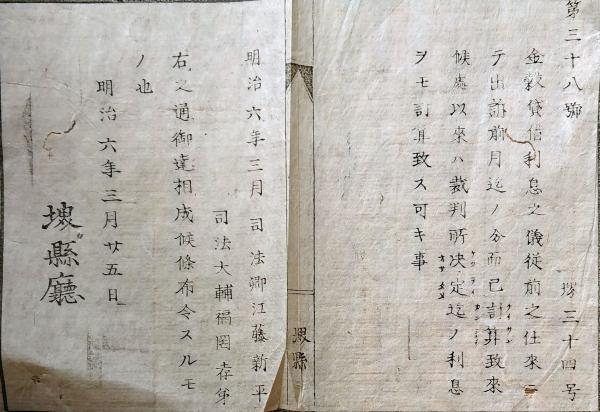 第三十八號
坊三十四号
金穀貸借利息之儀従前之仕来ニ
テ出訴前月迄ノ分而已計算致来
ケイサン
候處以来ハ裁判所決定迄ノ利息
ヲモ計算致ス可キ事
堺縣
明治六年三月 司法卿江藤新平
司法大輔福岡孝弟
右之通御達相成候條布令スルモ
ノ也
明治六年三月廿五日
堺縣廳